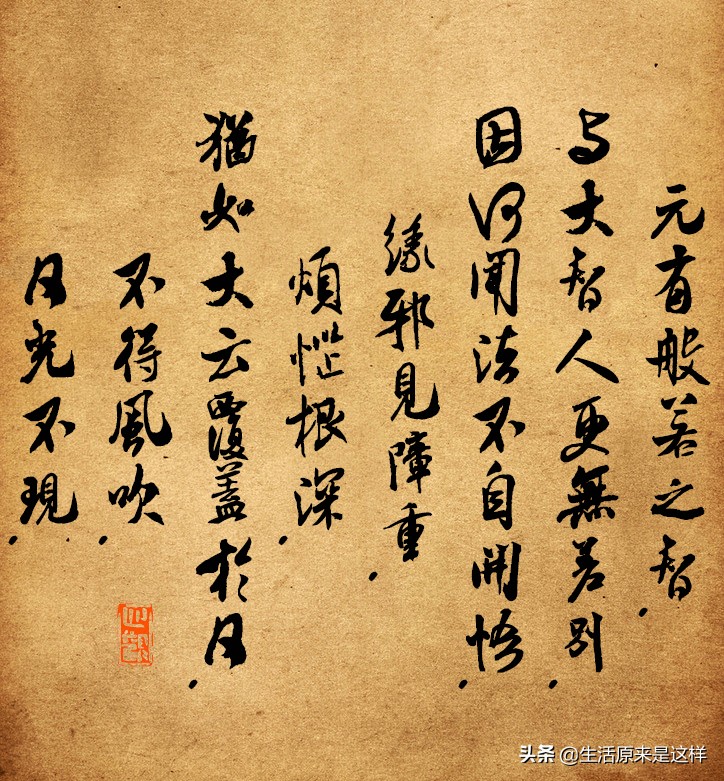 元有般若之智，
与大智人更無差別，
因何闻法不自開悟，
緣邪見障重，
煩惱根深，
猶如大云覆蓋於日，
不得風吹，
日光不現，
头条 @生活原来是这样